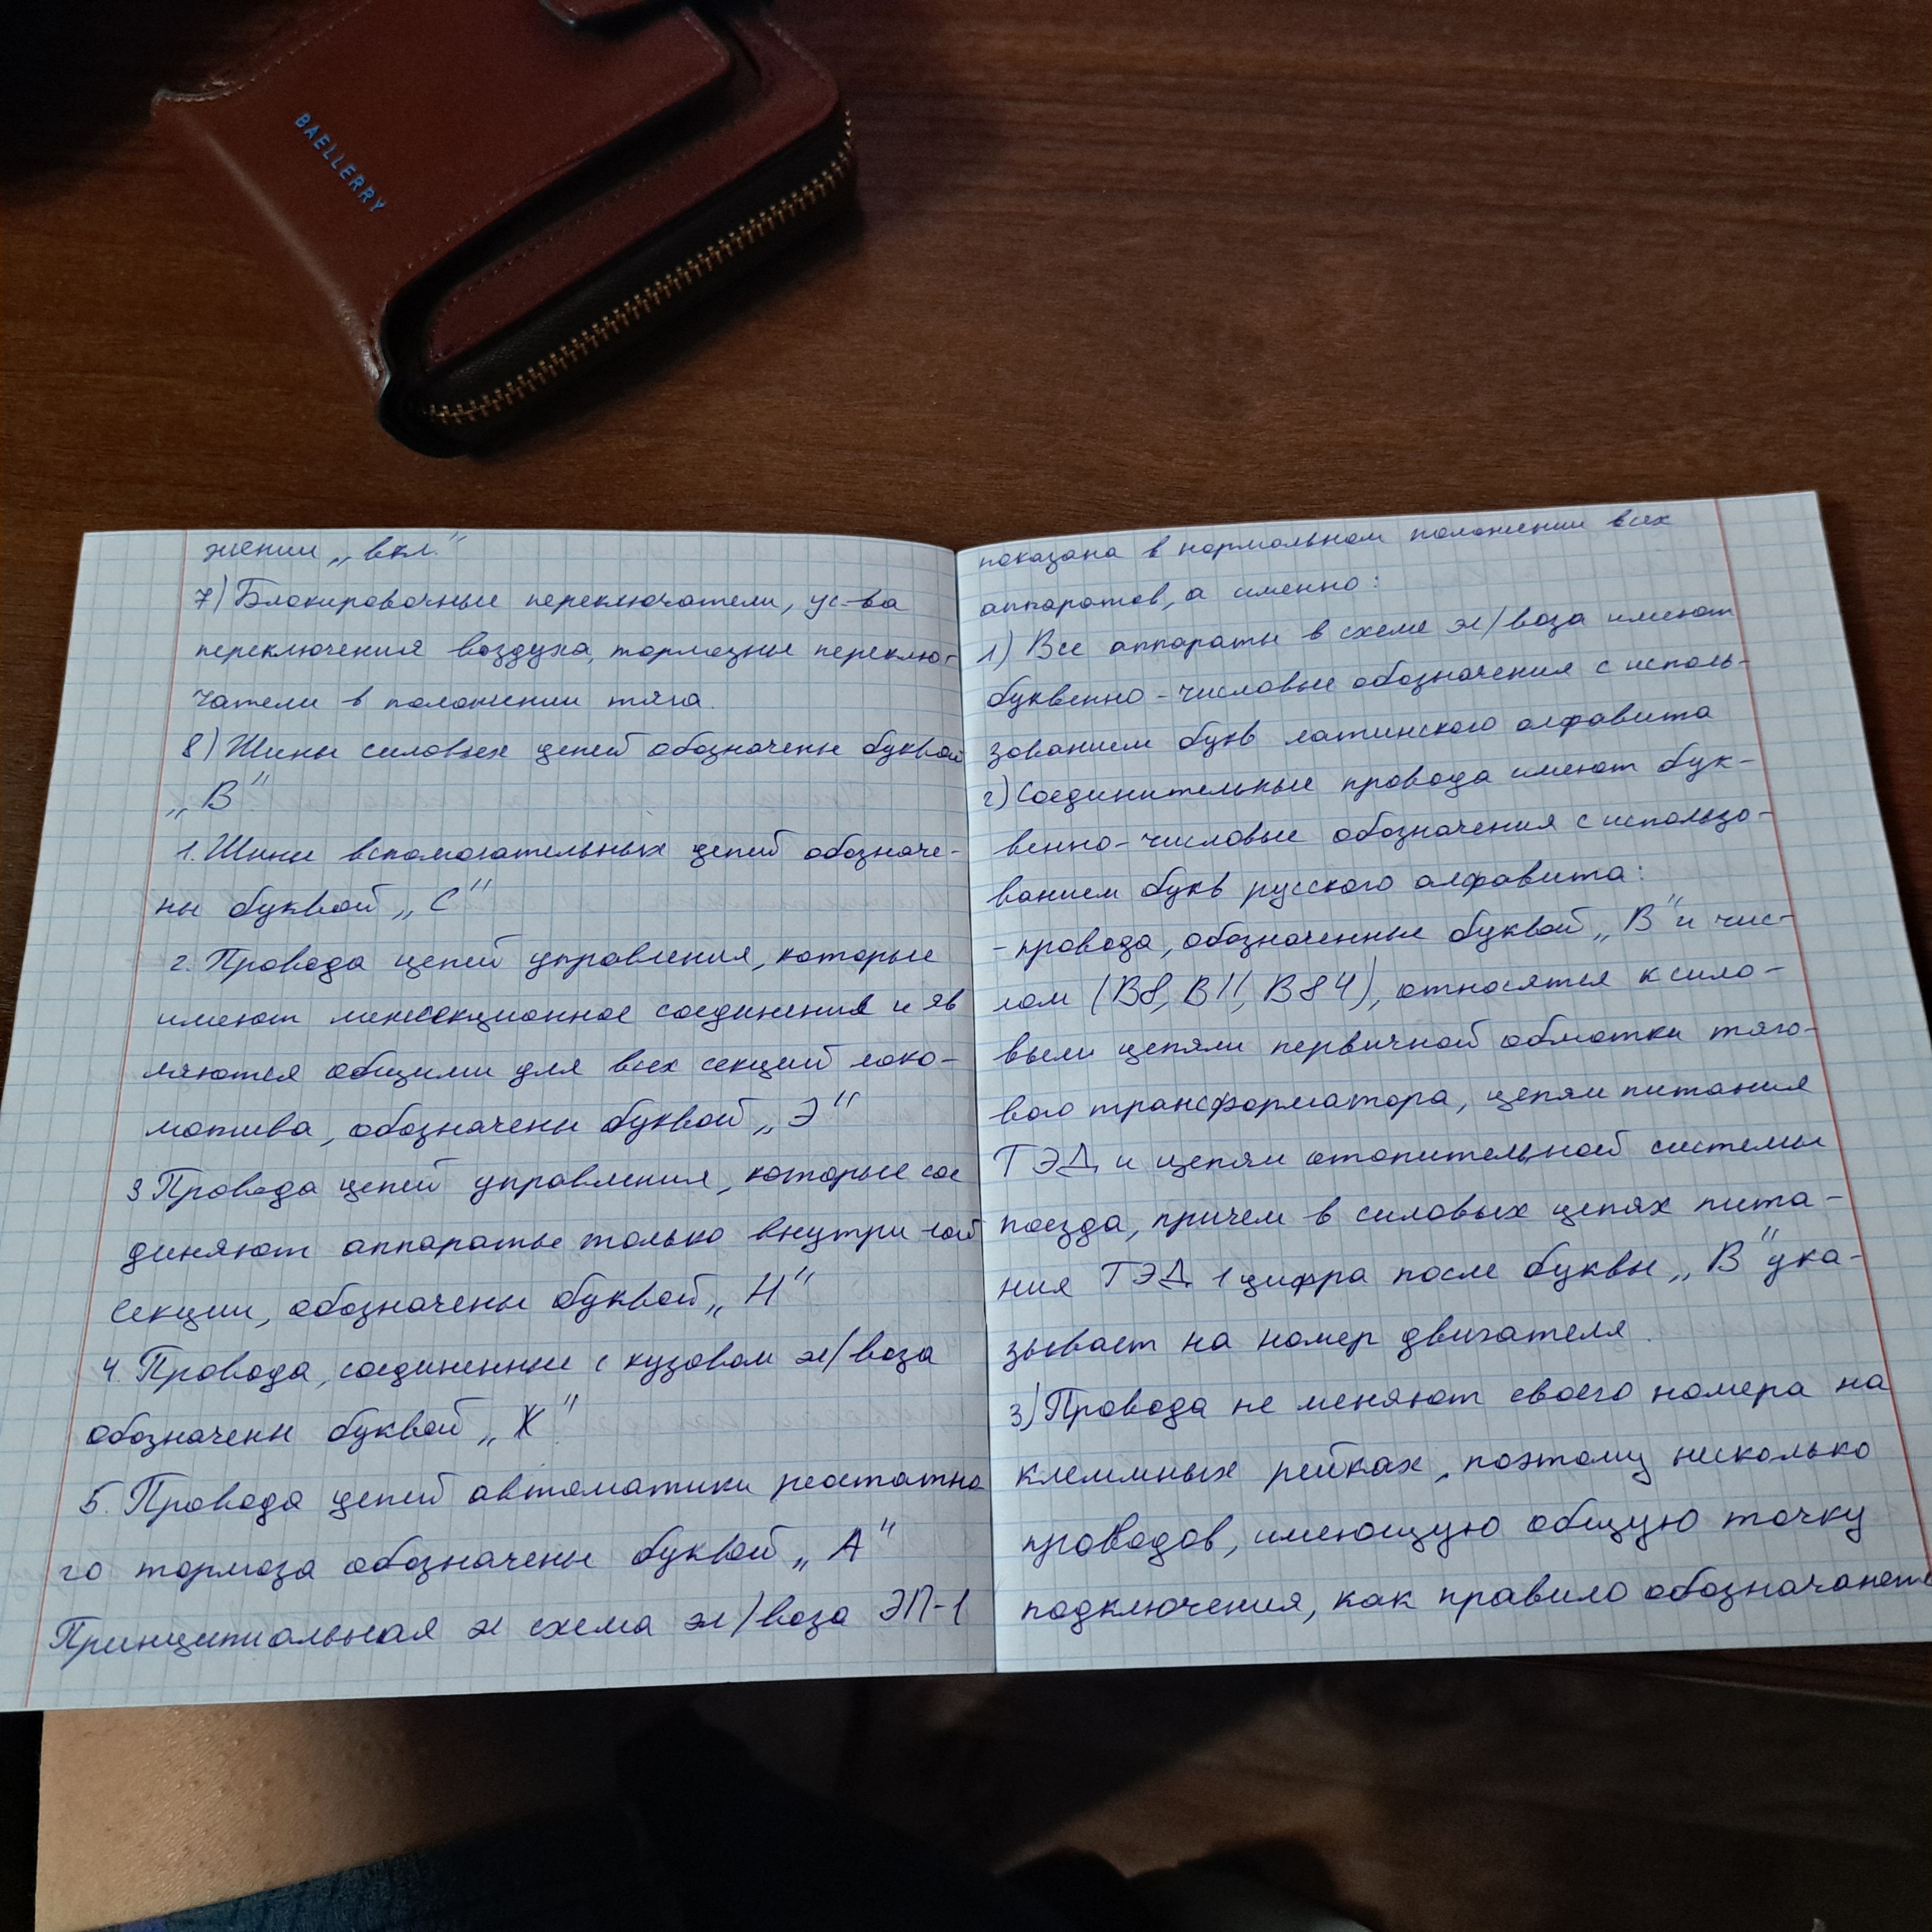 BAELLERRY
жении „вкл."
7) Блокировочные переключатели, ус-ва
переключения воздуха, тормозные переклю-
чатели в положении тяга.
8) Шины силовых цепей обозначены буквой
„В"
1. Шины вспомогательных цепей обозначе-
ны буквой „С"
2. Провода цепей управления, которые
имеют межсекционное соединения и яв
ляются общими для всех секций локо-
мотива, обозначены буквой „Э"
3 Провода цепей управления, которые сое
диняют аппараты только внутри 1ой
секции, обозначены буквой „Н"
4. Провода, соединенные с кузовом эл/воза
обозначены буквой „Ж"
5. Провода цепей автоматики реостатно
го тормоза обозначены буквой „А"
Принципиальная эл схема эл/воза ЭП-1
показана в нормальном положении всех
аппаратов, а именно:
1) Все аппараты в схеме эл/воза имеют
буквенно-числовые обозначения с исполь-
зованием букв латинского алфавита
2) Соединительные провода имеют бук-
венно-числовые обозначения с использо-
ванием букв русского алфавита:
- провода, обозначенные буквой „В" и чис-
лом (В8, В11, В84), относятся к сило-
выми цепями первичной обмотки тяго-
вого трансформатора, цепям питания
ТЭД и цепям отопительной системы
поезда, причем в силовых цепях пита-
ния ТЭД 1 цифра после буквы „В" ука-
зывает на номер двигателя.
3) Провода не меняют своего номера на
клеммных рейках, поэтому несколько
проводов, имеющую общую точку
подключения, как правило обозначают